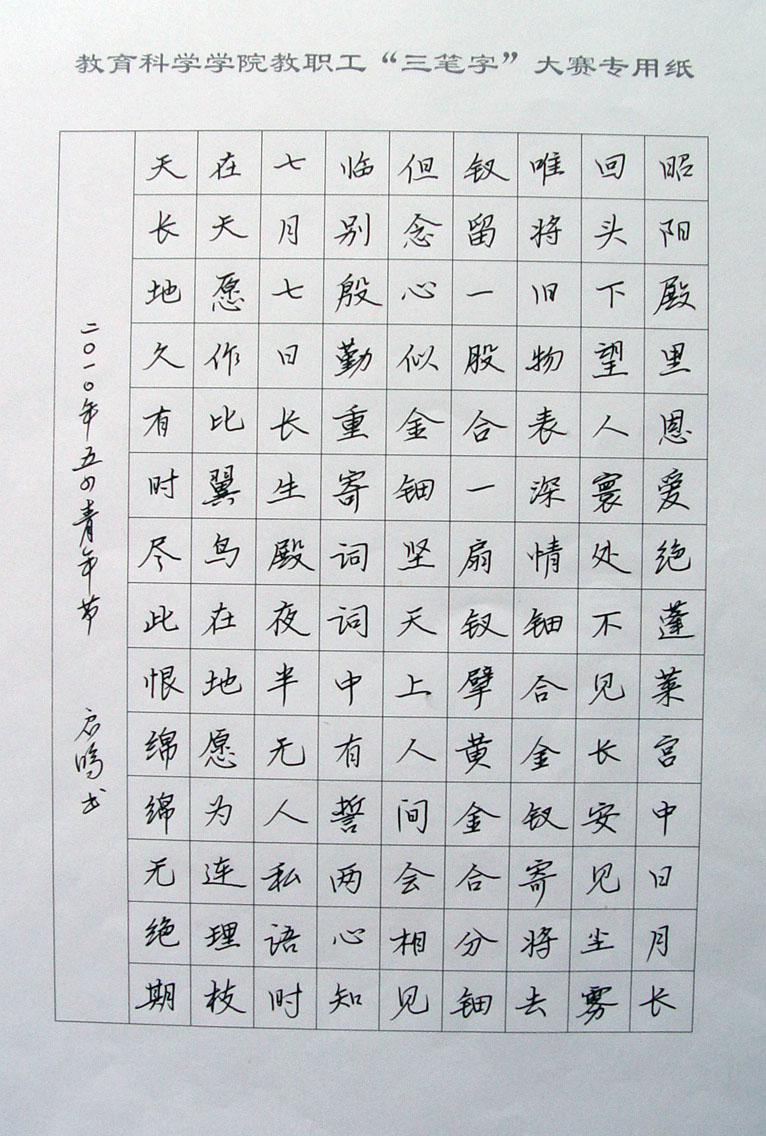 教育科学学院教职工“三笔字”大赛专用纸
昭阳殿里恩爱绝蓬莱宫中日月长
回头下望人寰处不见长安见尘雾
唯将旧物表深情钿合金钗寄将去
钗留一股合一扇钗擘黄金合分钿
但念心似金钿坚天上人间会相见
临别殷勤重寄词词中有誓两心知
七月七日长生殿夜半无人私语时
在天愿作比翼鸟在地愿为连理枝
天长地久有时尽此恨绵绵无绝期
二〇一〇年五四青年节 启鸣书